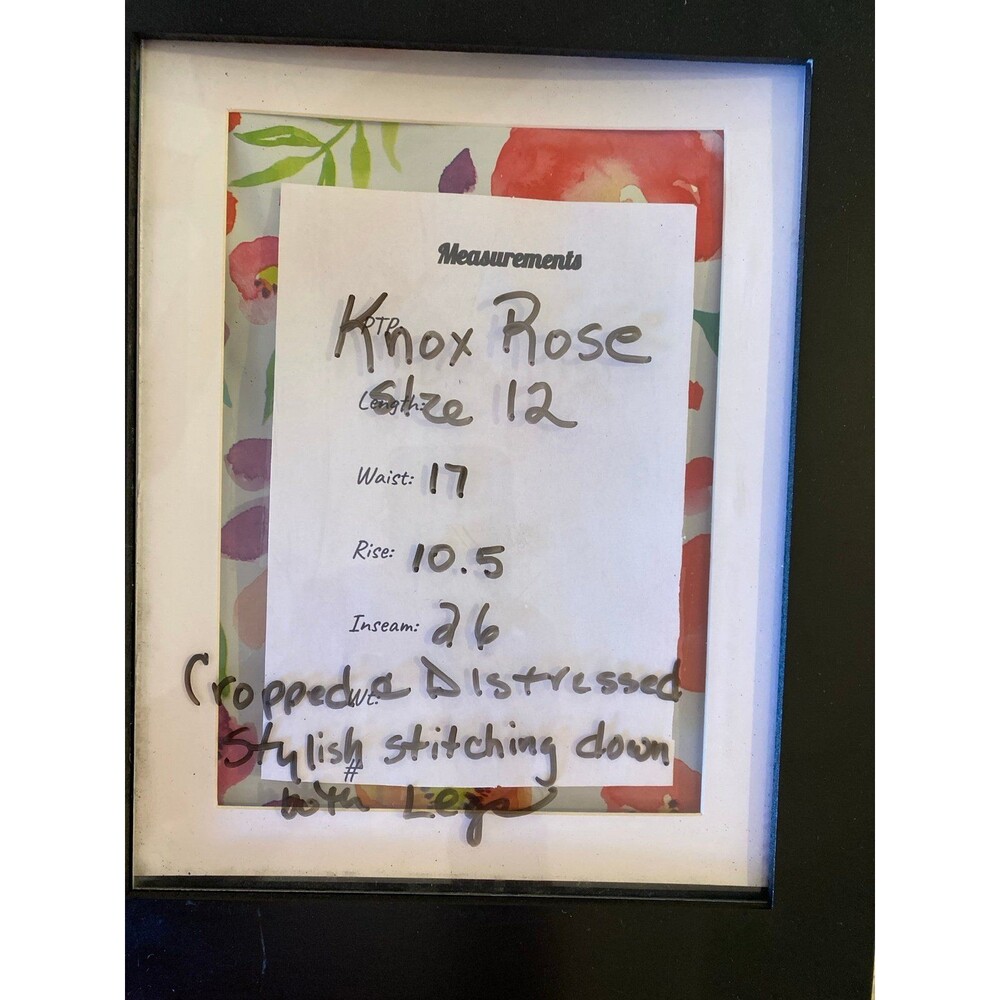 Measurements
PTP:
Knox Rose
Length:
Size 12
Waist: 17
Rise: 10.5
Inseam: 26
Cropped & Distressed
Wt:
Stylish stitching down
#
both Legs